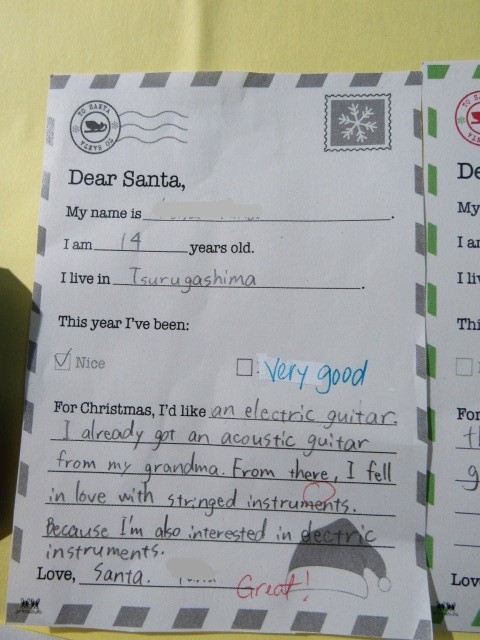 TO SANTA
TO SANTA
Dear Santa,
My name is
I am 14 years old.
I live in Tsurugashima.
This year I've been:
Nice
Very good
For Christmas, I'd like an electric guitar.
I already got an acoustic guitar
from my grandma. From there, I fell
in love with stringed instruments.
Because I'm also interested in electric
instruments.
Love, Santa.
Great!
De
My
I a
I li
Thi
For
t
g
Lo